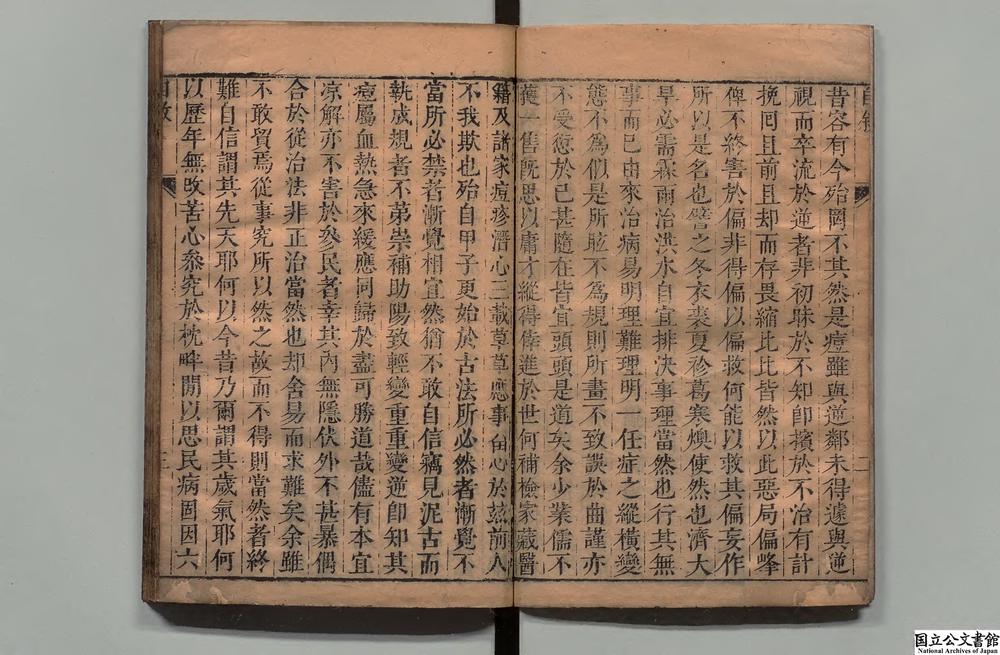 自敘
二
昔容有今殆罔不其然是痘雖與逆鄰未得遽與逆
視而卒流於逆者非初昧於不知卽擯於不治有計
挽回且前且却而存畏縮比比皆然以此惡局偏峰
俾不終害於偏非得偏以偏救何能以救其偏妄作
所以是名也譬之冬衣裘夏袗葛寒燠使然也濟大
旱必需霖雨治洪水自宜排決事理當然也行其無
事而已由來治病易明理難理明一任症之縱橫變
態不爲似是所眩不爲規則所畫不致誤於曲謹亦
不受愆於已甚隨在皆宜頭頭是道矣余少業儒不
獲一售旣思以庸才縱得倖進於世何補檢家藏醫
籍及諸家痘疹潛心三載草草應事留心於玆前人
不我欺也殆自甲子更始於古法所必然者漸覺不
當所必禁者漸覺相宜然猶不敢自信竊見泥古而
執成規者不第崇補助陽致輕變重重變逆卽知其
痘屬血熱急來緩應同歸於盡可勝道哉儘有本宜
凉解亦不害於參民者幸其內無隱伏外不甚暴偶
合於從治法非正治當然也却舍易而求難矣余雖
不敢貿焉從事究所以然之故而不得則當然者終
難自信謂其先天耶何以今昔乃爾謂其歲氣耶何
以歷年無改苦心叅究於枕畔閒以思民病固因六
自敘
三
国立公文書館
National Archives of Japan